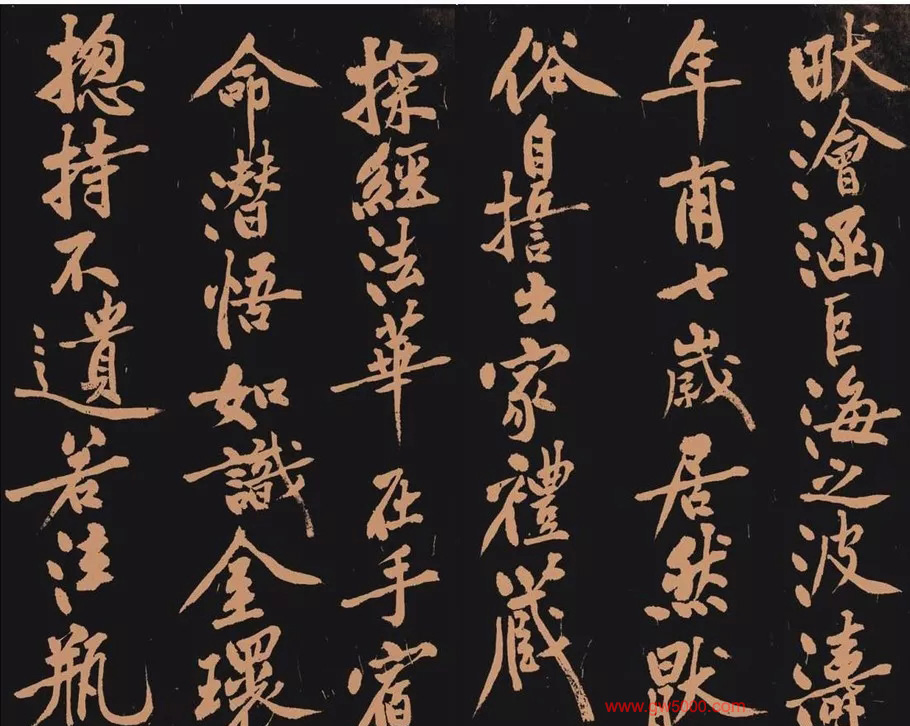 畎澮涵巨海之波濤
年甫七歲居然猒
俗自誓出家禮藏
探經法華在手宿
命潛悟如識金環
摠持不遺若注瓶
www.gw5000.com